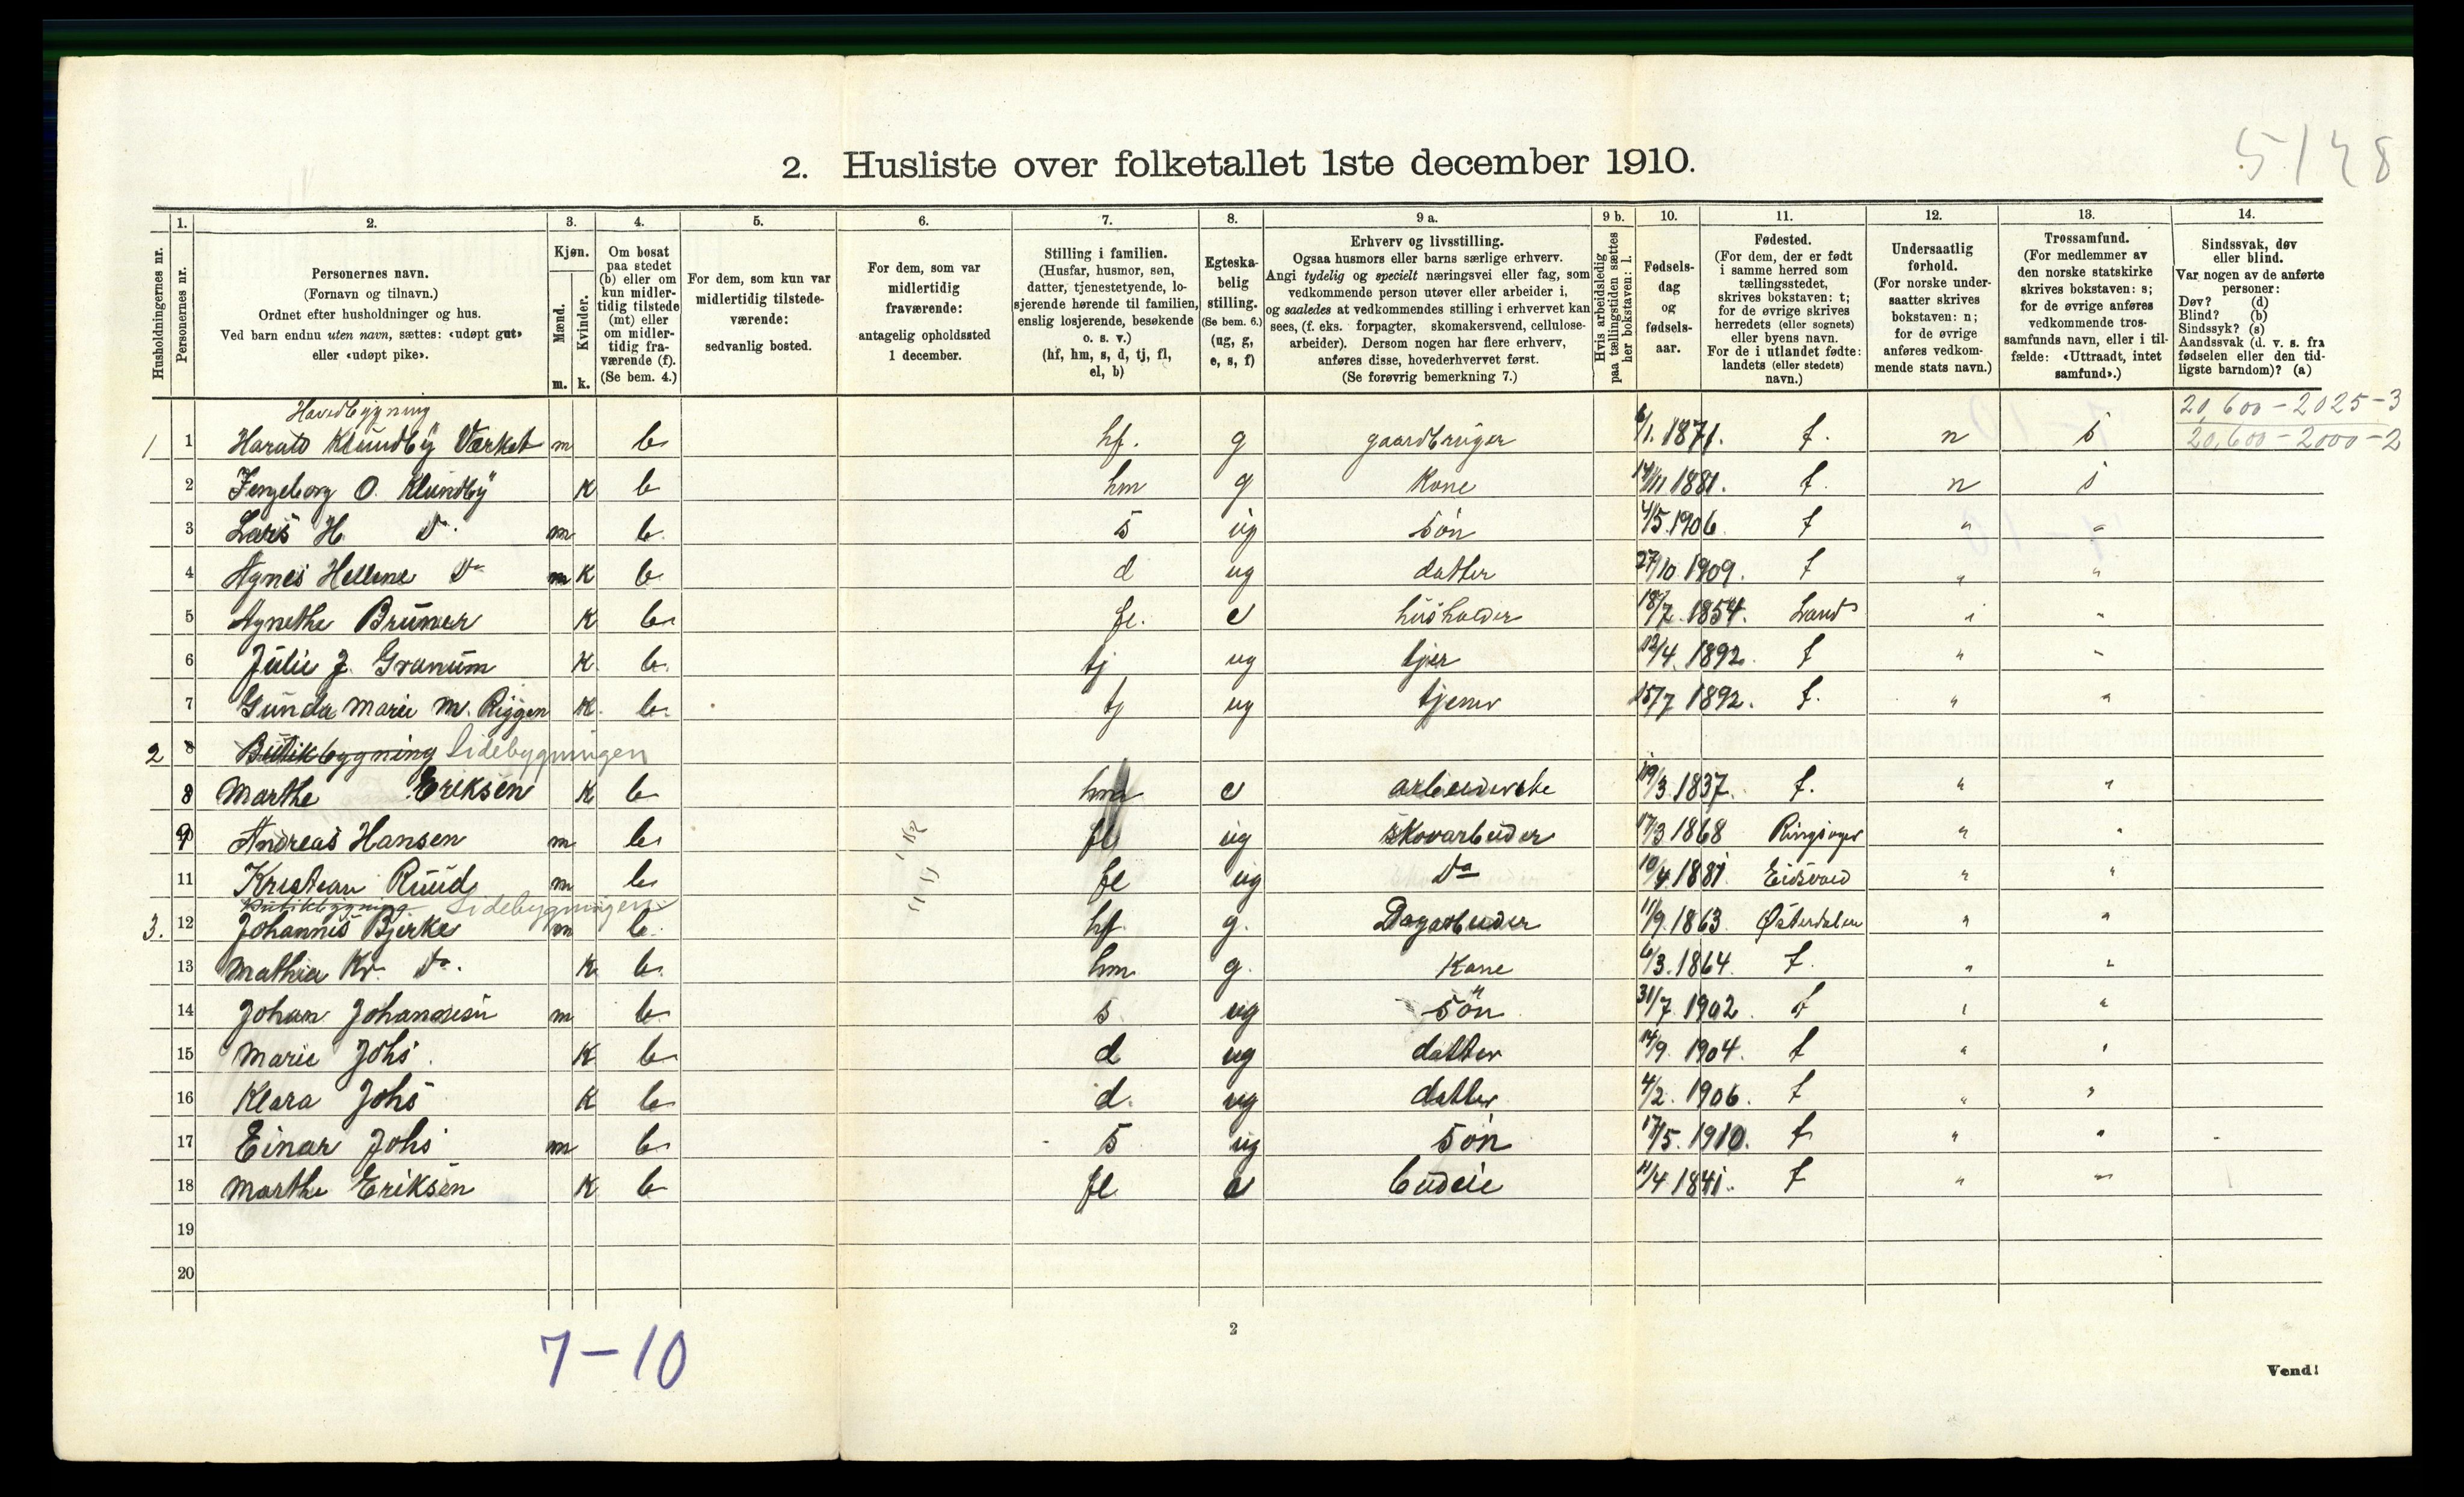 5128
2. Husliste over folketallet 1ste december 1910.
Husholdningernes nr.
1. Personernes nr.
2. Personernes navn. (Fornavn og tilnavn.) Ordnet efter husholdninger og hus. Ved barn endnu uten navn, sættes: «udøpt gut» eller «udøpt pike».
3. Kjøn. Mænd. m. Kvinder. k.
4. Om bosat paa stedet (b) eller om kun midlertidig tilstede (mt) eller om midlertidig fraværende (f). (Se bem. 4.)
5. For dem, som kun var midlertidig tilstedeværende: sedvanlig bosted.
6. For dem, som var midlertidig fraværende: antagelig opholdssted 1 december.
7. Stilling i familien. (Husfar, husmor, søn, datter, tjenestetyende, losjerende hørende til familien, enslig losjerende, besøkende o. s. v.) (hf, hm, s, d, tj, fl, el, b)
8. Egteskabelig stilling. (Se bem. 6.) (ug, g, e, s, f)
9 a. Erhverv og livsstilling. Ogsaa husmors eller barns særlige erhverv. Angi tydelig og specielt næringsvei eller fag, som vedkommende person utøver eller arbeider i, og saaledes at vedkommendes stilling i erhvervet kan sees, (f. eks. forpagter, skomakersvend, cellulosearbeider). Dersom nogen har flere erhverv, anføres disse, hovederhvervet først. (Se forøvrig bemerkning 7.)
9 b. Hvis arbeidsledig paa tællingstiden sættes her bokstaven: l.
10. Fødselsdag og fødselsaar.
11. Fødested. (For dem, der er født i samme herred som tællingsstedet, skrives bokstaven: t; for de øvrige skrives herredets (eller sognets) eller byens navn. For de i utlandet fødte: landets (eller stedets) navn.)
12. Undersaatlig forhold. (For norske undersaatter skrives bokstaven: n; for de øvrige anføres vedkommende stats navn.)
13. Trossamfund. (For medlemmer av den norske statskirke skrives bokstaven: s; for de øvrige anføres vedkommende trossamfunds navn, eller i tilfælde: «Uttraadt, intet samfund».)
14. Sindssvak, døv eller blind. Var nogen av de anførte personer: Døv? (d) Blind? (b) Sindssyk? (s) Aandssvak (d. v. s. fra fødselen eller den tidligste barndom)? (a)
Hovedbygning 20,600-2025-3
1 1 Harald Klundby Værket m b hf. g gaardbruger 6/1. 1871. t. n s 20,600-2000-2
2 Ingeborg O. Klundby K b hm g Kone 14/11 1881. t. n s
3 Lars H. Do. m b s ug Søn 4/5. 1906. t " "
4 Agnes Hellene Do m K b d ug datter 27/10. 1909. t " "
5 Agnethe Bruner K b fl. e husholder 18/7. 1854. Land " "
6 Julie J. Granum K. b. tj ug tjer 12/4. 1892. t " "
7 Gunda Marie M. Riggen K. b. tj ug tjener 15/7 1892. t. " "
2 8 Butikbygning Sidebygningen
8 Marthe Eriksen K b hm e arbeiderske 19/3. 1837. t. " "
9 Andreas Hansen m b fl ug Skovarbeider 17/3 1868 Ringsager " "
11 Kristian Ruud m b fl ug Do 10/4. 1881. Eidsvold " "
Butikbygning Sidebygningen
3. 12 Johannis Bjerke m b. hf. g. Dagarbeider 11/9. 1863. Østerdalen " "
13 Mathia Kr. Do. K b. hm g. Kone 6/3. 1864. t. " "
14 Johan Johannesen m b. s ug Søn 31/7. 1902. t " "
15 Marie Johs. K b d ug datter 14/9. 1904. t " "
16 Klara Johs K b d. ug datter 4/2. 1906. t " "
17 Einar Johs m b s ug Søn 17/5. 1910. t " "
18 Marthe Eriksen K b fl e budeie 11/4. 1841. t " "
19
20
7-10
2
Vend!